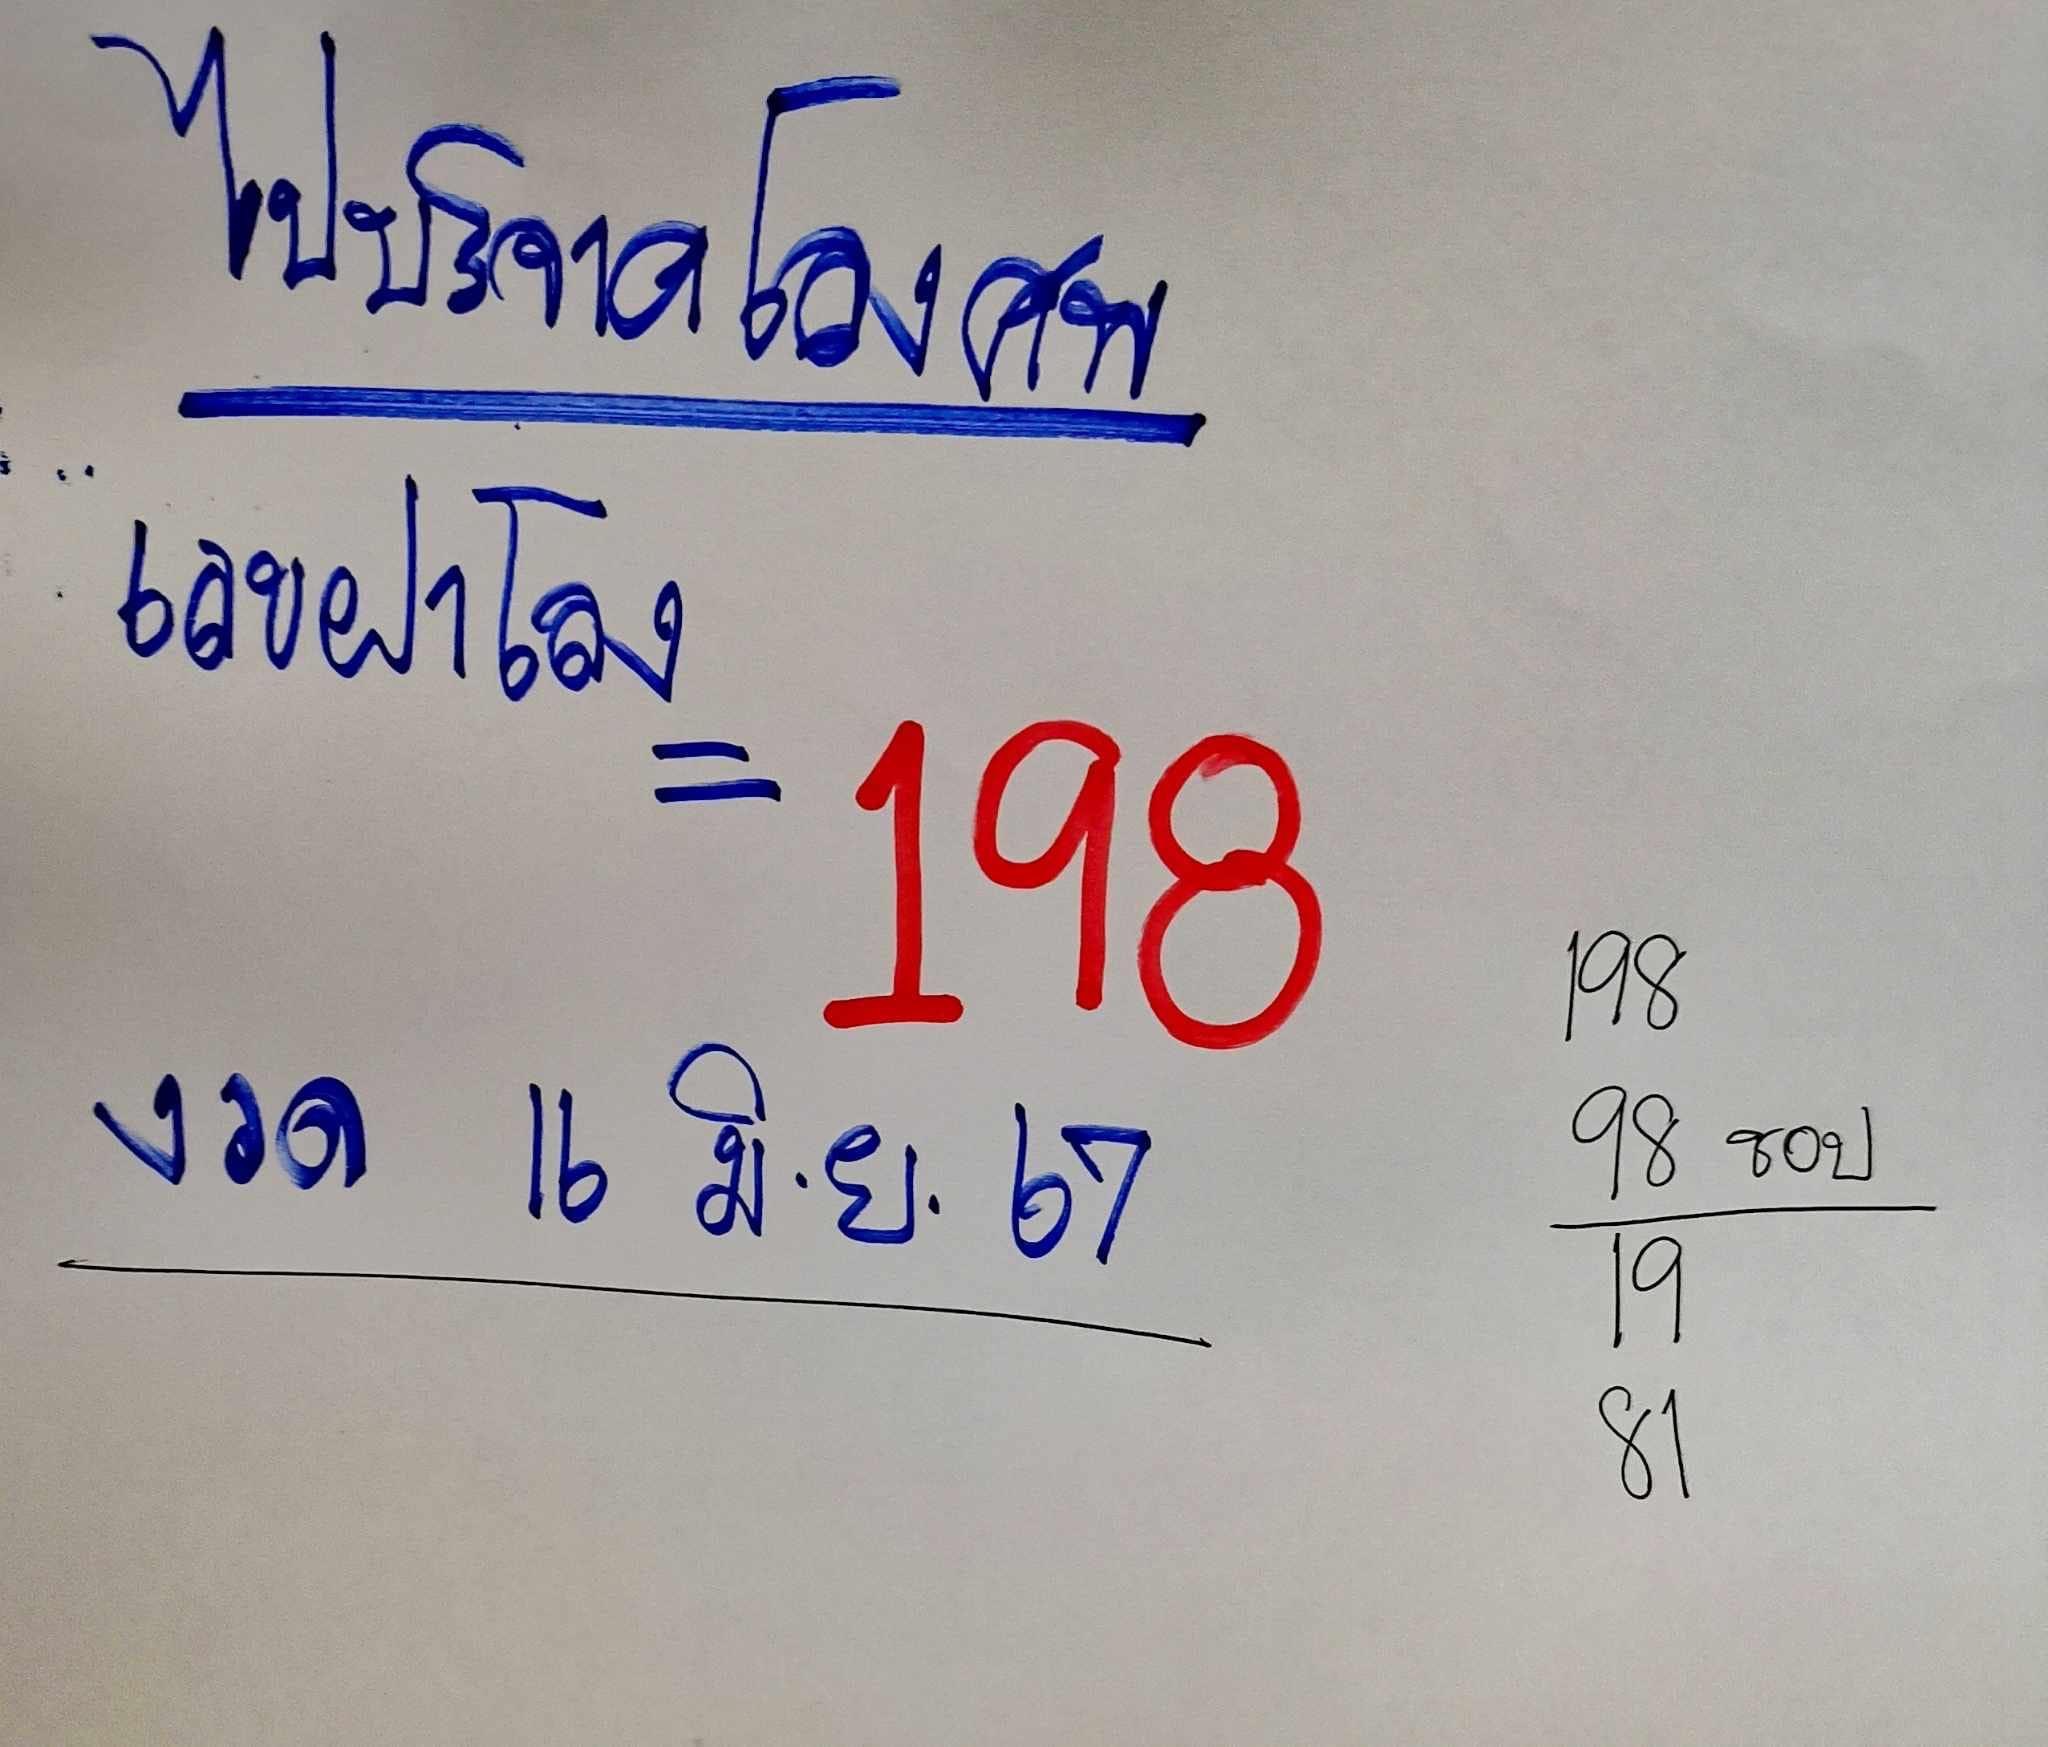 ไปบริจาคโลงศพ
เลขฝาโลง
= 198
งวด 16 มิ.ย. 67
198
98 ชอบ
19
81